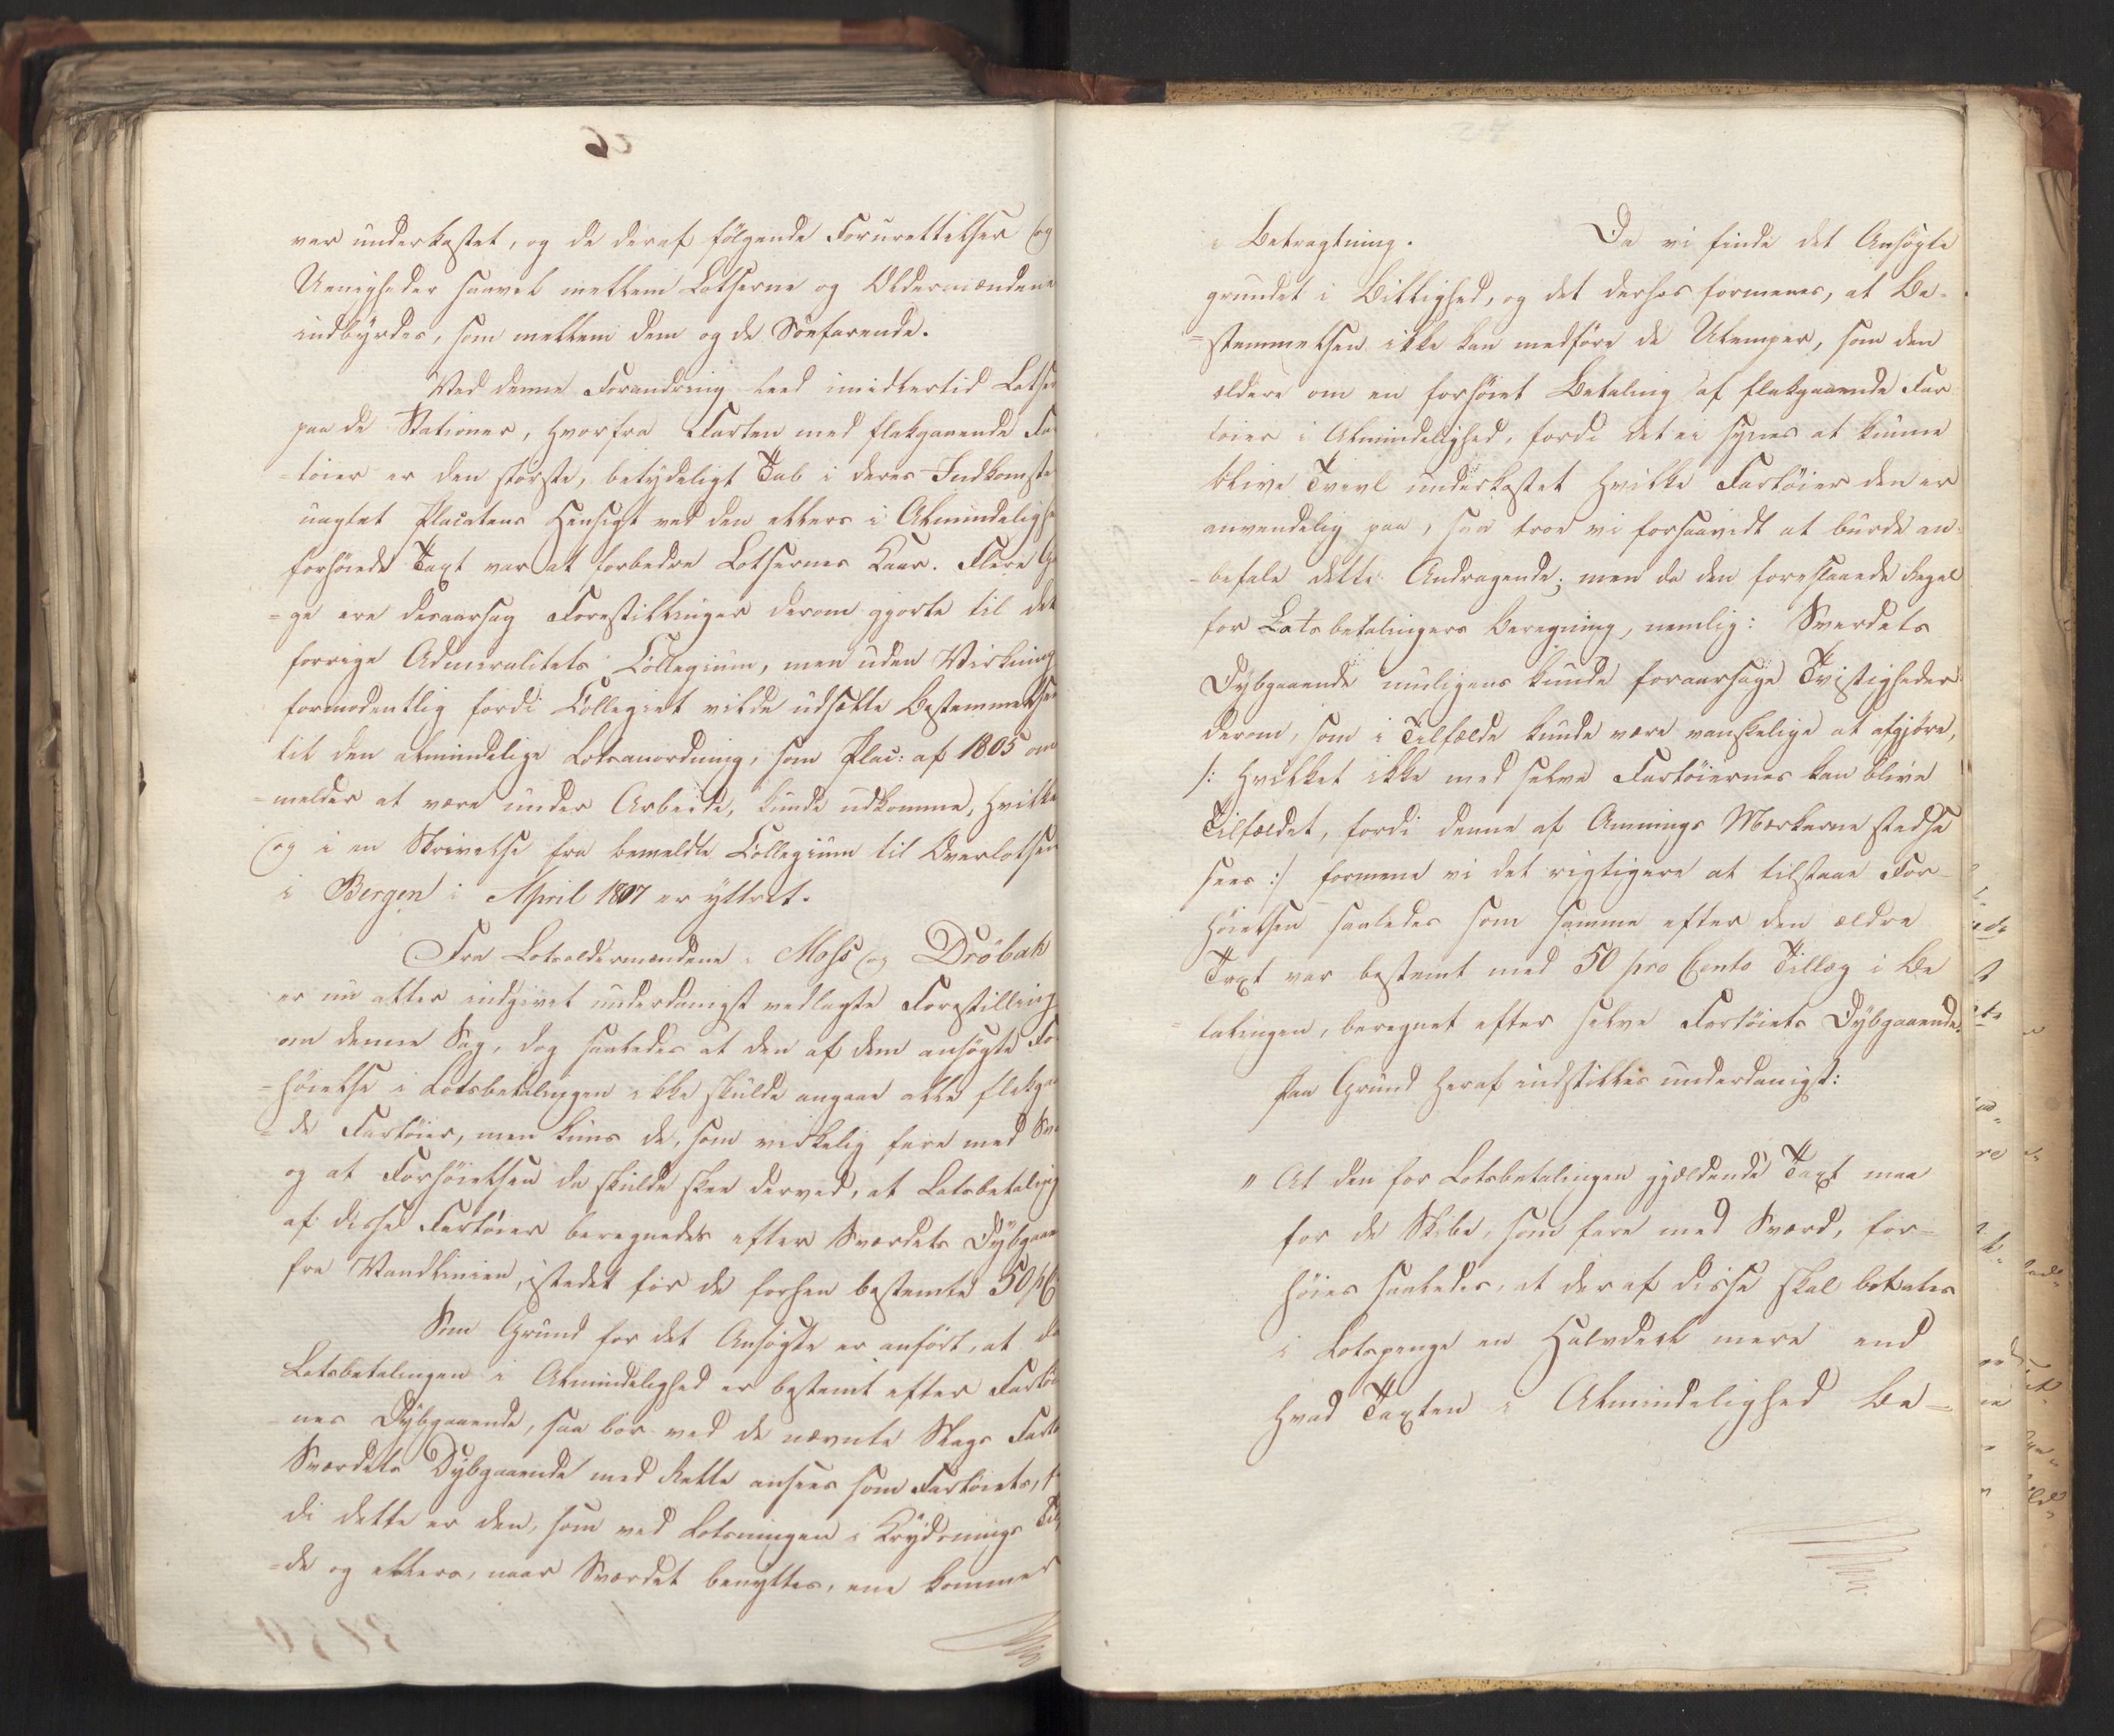 var underkastet, og de deraf fölgende Forurettelser og
Uenigheder saavel mellem Lotserne og Oldermændene
indbyrdes, som mellem dem og de Söefarende.
Ved denne Forandring leed imidlertid Lotser
paa de Stationer, hvorfra Farten med flakgaaende Far
=töier er den störste, betydeligt Tab i deres Indkomster
uagtet Placatens Hensigt ved den ellers i Almindelighe
forhöiede Taxt var at forbedre Lotsernes Kaar. Flere G
=ge ere desaarsag Forestillinger derom gjorte til det
forrige Admiralitets Collegium, men uden Virkning
formodentlig fordi Collegiet vilde udsætte Bestemmelsen
til den almindelige Lotsanordning, som Plac: af 1805 om
=melder at være under Arbeide, kunde udkomme, hvilke
og i en Skrivelse fra bemeldte Collegium til Overlotsen
i Bergen i April 1807 er yttret.
Fra Lotsoldermændene i Moss og Dröbak
er nu atter indgivet underdanigst vedlagte Forestilling
om denne Sag, dog saaledes at den af dem ansögte Fo
=höielse i Lotsbetalingen ikke skulde angaae alle flakga
=de Fartöier, men kuns de, som virkelig fare med Sv
og at Forhöielsen da skulde skee derved, at Lotsbetaling
af disse Fartöier beregnedes efter Sværdets Dybgaae
fra Vandlinien, istedet for de forhen bestemte 50 pC
Som Grund for det Ansögte er anfört, at da
Lotsbetalingen i Almindelighed er bestemt efter Fartöi
nes Dybgaaende, saa bör ved de nævnte Slags Fartö
Sværdets Dybgaaende med Rette ansees som Fartöiets, f
di dette er den, som ved Lotsningen i Krydsnings Til
=de og ellers, naar Sværdet benyttes, ene kommer
i Betragtning. Da vi finde det Ansögte
grundet i Billighed, og det derhos formenes, at Be-
=stemmelsen ikke kan medföre de Ulemper, som den
ældere om en forhöiet Betaling af flakgaaende Far
töier i Almindelighed, fordi det ei synes at kunne
blive Tvivl underkastet hvilke Fartöier den er
anvendelig paa, saa troe vi forsaavidt at burde an-
-befale dette Andragende; men da den foreslaaede Regel
for Lotsbetalingers Beregning, nemlig: Sværdets
Dybgaaende muligens kunde foraarsage Tvistigheder
derom, som i Tilfælde kunde være vanskelige at afgjöre,
/: hvilket ikke med selve Fartöiernes kan blive
Tilfældet, fordi denne af Amnings Mærkerne stedse
sees :/ formene vi det rigtigere at tilstaae For-
höielsen saaledes som samme efter den ældre
Taxt var bestemt med 50 pro Cento Tillæg i Be
=talingen, beregnet efter selve Fartöiets Dybgaaende.
Paa Grund heraf indstilles underdanigst:
" At den for Lotsbetalingen gjældende Taxt maa
for de Skibe, som fare med Sværd, for-
höies saaledes, at der af disse skal betales
i Lotspenge en Halvdeel mere end
hvad Taxten i Almindelighed be-